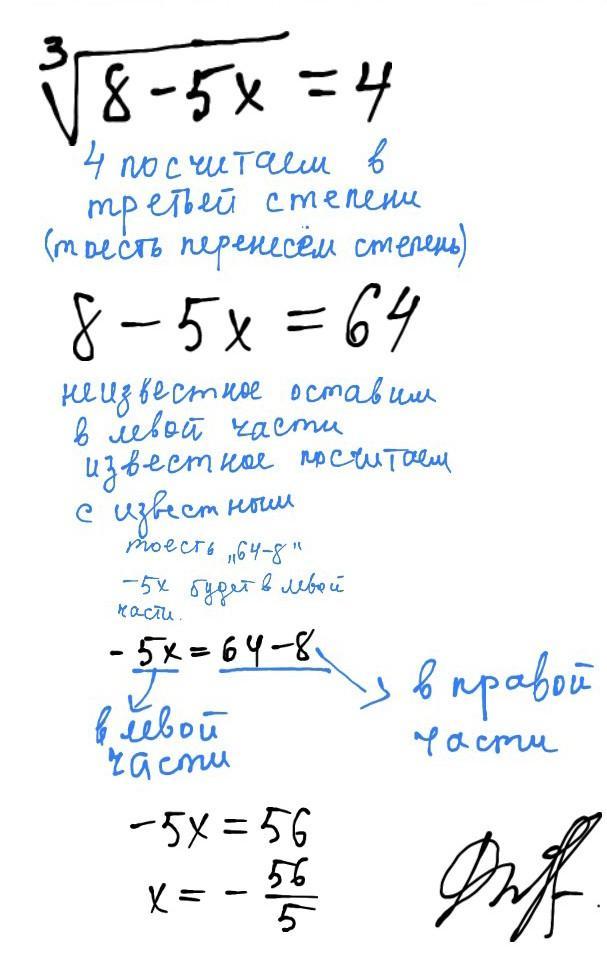 ∛8-5x = 4
4 посчитаем в
третьей степени
(тоесть перенесём степень)
8-5x = 64
неизвестное оставим
в левой части
известное посчитаем
с известным
тоесть „64-8"
-5x будет в левой
части.
-5x = 64-8
в правой
части
в левой
части
-5x = 56
x = - 56/5